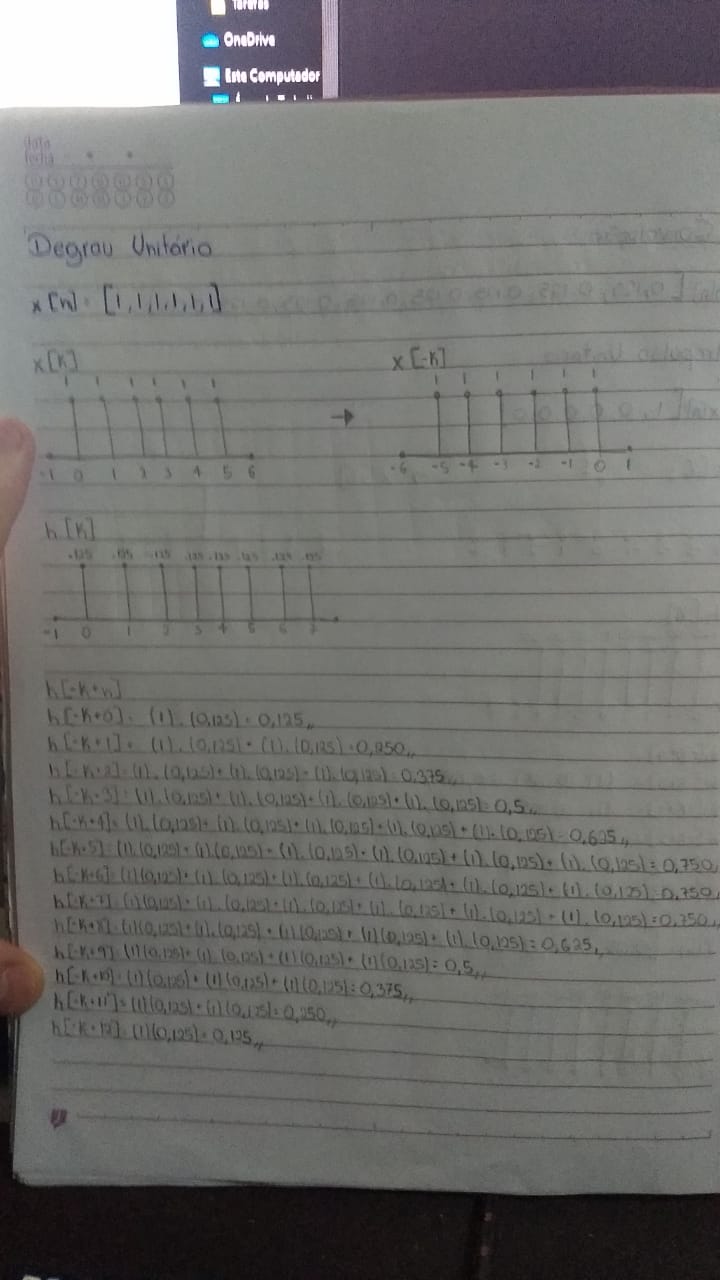 Tarefas
OneDrive
Este Computador
data
fecha
Degrau Unitário
x[n] = [1,1,1,1,1,1]
x[K]
x[-K]
1 1 1 1 1 1
1 1 1 1 1 1
-1 0 1 2 3 4 5 6
-6 -5 -4 -3 -2 -1 0 1
h[K]
.125 .125 .125 .125 .125 .125 .125 .125
-1 0 1 2 3 4 5 6 7
h[-K+n]
h[-K+0] = (1).(0,125) = 0,125,,
h[-K+1] = (1).(0,125) + (1).(0,125) = 0,250,,
h[-K+2] = (1).(0,125) + (1).(0,125) + (1).(0,125) = 0,375,,
h[-K+3] = (1).(0,125) + (1).(0,125) + (1).(0,125) + (1).(0,125) = 0,5,,
h[-K+4] = (1).(0,125) + (1).(0,125) + (1).(0,125) + (1).(0,125) + (1).(0,125) = 0,625,,
h[-K+5] = (1).(0,125) + (1).(0,125) + (1).(0,125) + (1).(0,125) + (1).(0,125) + (1).(0,125) = 0,750,,
h[-K+6] = (1)(0,125) + (1).(0,125) + (1).(0,125) + (1).(0,125) + (1).(0,125) + (1).(0,125) = 0,750,,
h[-K+7] = (1)(0,125) + (1).(0,125) + (1).(0,125) + (1).(0,125) + (1).(0,125) + (1).(0,125) = 0,750,,
h[-K+8] = (1)(0,125) + (1).(0,125) + (1)(0,125) + (1)(0,125) + (1).(0,125) = 0,625,,
h[-K+9] = (1)(0,125) + (1).(0,125) + (1)(0,125) + (1)(0,125) = 0,5,,
h[-K+10] = (1)(0,125) + (1)(0,125) + (1)(0,125) = 0,375,,
h[-K+11] = (1)(0,125) + (1)(0,125) = 0,250,,
h[-K+12] = (1)(0,125) = 0,125,,